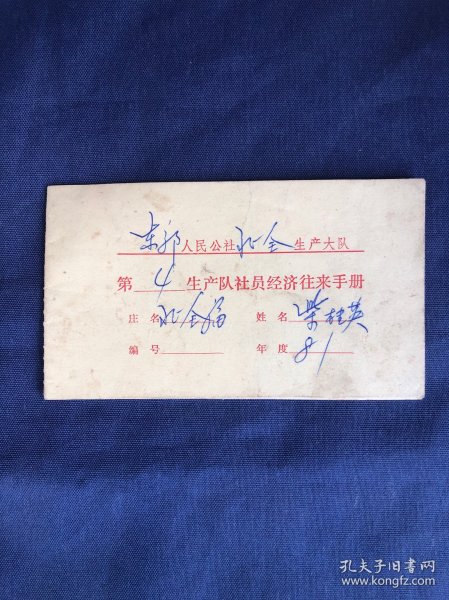 东郭人民公社北全生产大队
第4生产队社员经济往来手册
庄名北全 姓名柴桂英
编号 年度81
孔夫子旧书网
www.kongfz.com